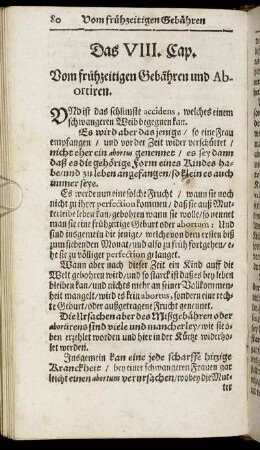 80 Vom frühzeitigen Gebähren
Das VIII. Cap.
Vom frühzeitigen Gebähren und Ab-
ortiren.
UNd ist das schlimste accidens, welches einem
schwangeren Weib begegnen kan.
Es wird aber das jenige / so eine Frau
empfangen / und vor der Zeit wider verschüttet /
nicht eher ein abortus genennet / es sey dann
daß es die gehörige Form eines Kindes ha-
be / und zu leben angefangen / so klein es auch
immer seye.
Es werde nun eine solche Frucht / wann sie noch
nicht zu ihrer perfection kommen / daß sie auß Mut-
terleibe leben kan / gebohren wann sie wolle / so nennet
man sie eine frühzeitige Geburt oder abortum: Und
sind insgemein die jenige / welche von dem ersten biß
zum siebenden Monat / und also zu früh fortgehen / e-
he sie zu völliger perfection gelanget.
Wann aber nach dieser Zeit ein Kind auff die
Welt gebohren wird / und so starck ist daß es bey leben
bleiben / und nichts mehr an seiner Vollkommen-
heit mangelt / wird es kein abortus, sondern eine rech-
te Geburt / oder außgetragene Frucht genennet.
Die Ursachen aber des Mißgebähren oder
abortirens sind viele und mancherley / wie sie
oben erzehlt worden und hier in der Kürtze widerho-
let werden.
Insgemein kan eine jede scharffe hitzige
Kranckheit / bey einer schwangeren Frauen gar
leicht einen abortum verursachen / wobey die Mut-
ter